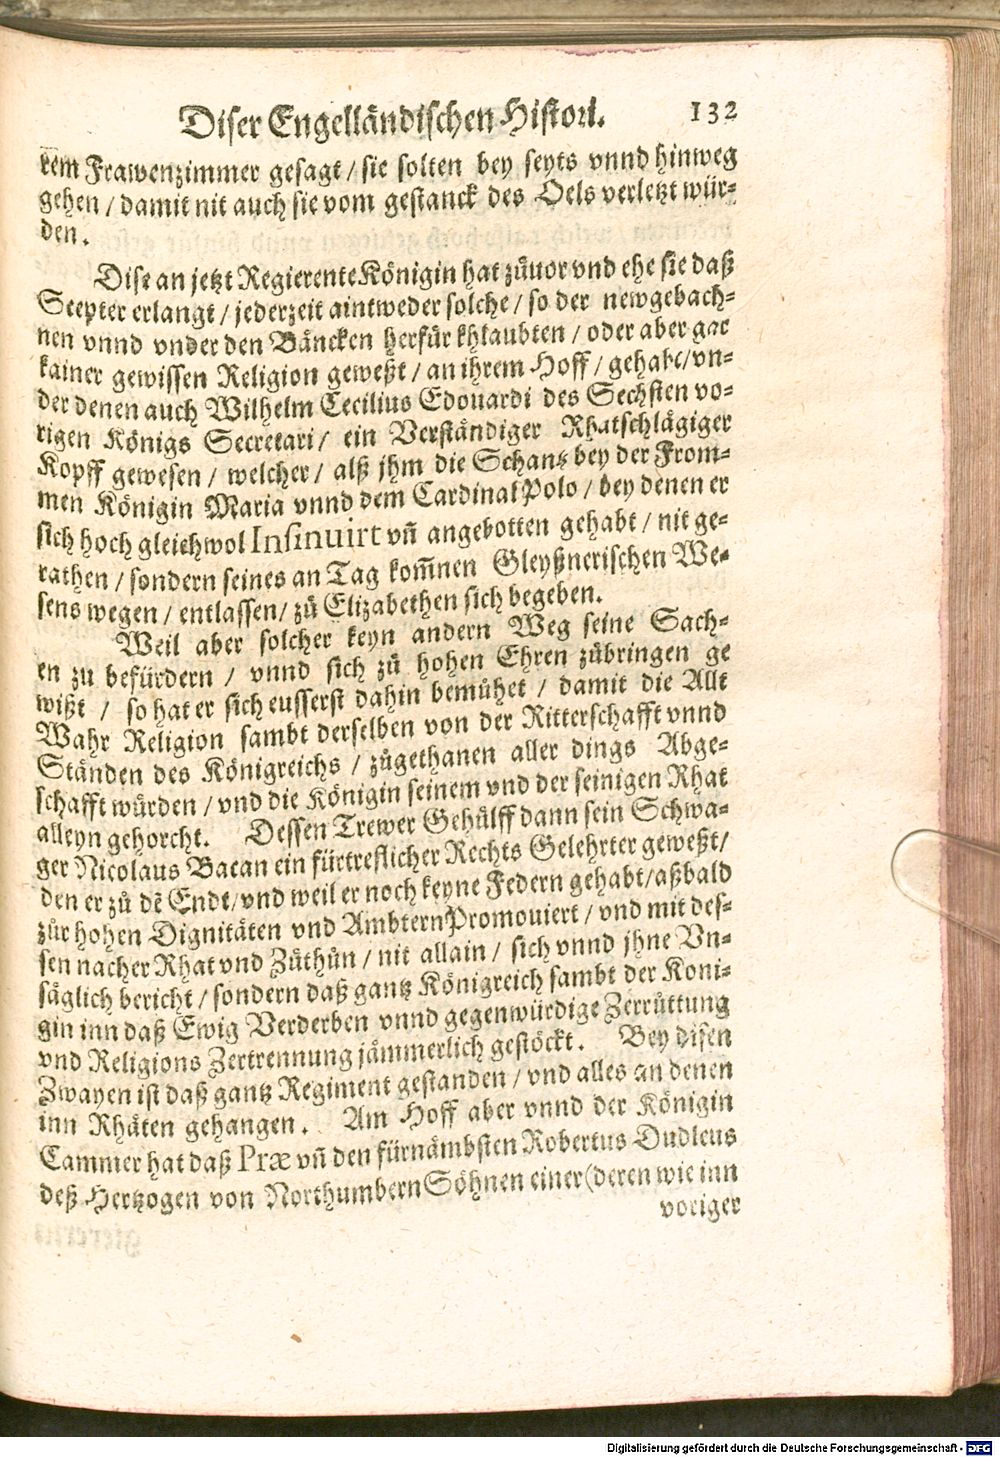 Diser Engelländischen Histori. 132
rem Frawenzimmer gesagt / sie solten bey seyts vnnd hinweg
gehen / damit nit auch sie vom gestanck des Oels verletzt wür-
den.
Dise an jetzt Regierente Königin hat zůuor vnd ehe sie daß
Scepter erlangt / jederzeit aintweder solche / so der newgebach-
nen vnnd vnder den Bäncken herfür khlaubten / oder aber gar
kainer gewissen Religion geweßt / an ihrem Hoff / gehabt / vn-
der denen auch Wilhelm Cecilius Edouardi des Sechsten vo-
rigen Königs Secretari / ein Verständiger Rhatschlägiger
Kopff gewesen / welcher / alß jhm die Schantz bey der From-
men Königin Maria vnnd dem Cardinal Polo / bey denen er
sich hoch gleichwol Insinuirt vñ angebotten gehabt / nit ge-
rathen / sondern seines an Tag kom̃nen Gleyßnerischen We-
sens wegen / entlassen / zů Elizabethen sich begeben.
Weil aber solcher keyn andern Weg seine Sach-
en zu befürdern / vnnd sich zů hohen Ehren zůbringen ge
wißt / so hat er sich eusserst dahin bemůhet / damit die Allt
Wahr Religion sambt derselben von der Ritterschafft vnnd
Ständen des Königreichs / zůgethanen aller dings Abge-
schafft würden / vnd die Königin seinem vnd der seinigen Rhat
alleyn gehorcht. Dessen Trewer Gehülff dann sein Schwa-
ger Nicolaus Bacan ein fürtreflicher Rechts Gelehrter geweßt /
den er zů dẽ Endt / vnd weil er noch keyne Federn gehabt / aßbald
zůr hohen Dignitäten vnd Ambtern Promouiert / vnd mit des-
sen nacher Rhat vnd Zůthůn / nit allain / sich vnnd jhne Vn-
säglich bericht / sondern daß gantz Königreich sambt der Koni-
gin inn daß Ewig Verderben vnnd gegenwürdige Zerrüttung
vnd Religions Zertrennung jämmerlich gestöckt. Bey disen
Zwayen ist daß gantz Regiment gestanden / vnd alles an denen
inn Rhäten gehangen. Am Hoff aber vnnd der Königin
Cammer hat daß Præ vñ den fürnämbsten Robertus Dudleus
deß Hertzogen von Northumbern Söhnen einer (deren wie inn
voriger
Digitalisierung gefördert durch die Deutsche Forschungsgemeinschaft - DFG